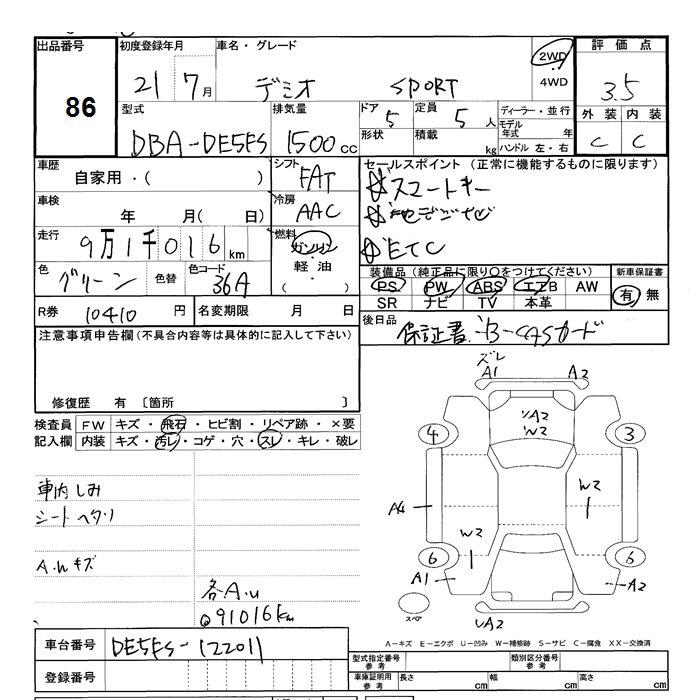 出品番号 初度登録年月 車名・グレード 2WD 評価点
86 21 7月 デミオ SPORT 4WD 3.5
型式 排気量 ドア 定員 ディーラー・並行 外装 内装
DBA-DE5FS 1500cc 5 5人 モデル年式 年 C C
形状 積載 kg ハンドル 左・右
車歴 シフト セールスポイント (正常に機能するものに限ります)
自家用・( ) FAT スマートキー
車検 冷房
年 月(日) AAC
走行 燃料 ETC
9万1千016km ガソリン
色 色替 色コード 軽油 装備品 (純正品に限り○をつけてください) 新車保証書
グリーン 36A ( ) PS PW ABS エアB AW 有 無
SR ナビ TV 本革
R券 10410円 名変期限 月 日 後日品 保証書、B-CASカード
注意事項申告欄 (不具合内容等は具体的に記入して下さい)
修復歴 有 〔箇所 〕
検査員 FW キズ・飛石・ヒビ割・リペア跡・×要
記入欄 内装 キズ・汚レ・コゲ・穴・スレ・キレ・破レ
車内しみ
シートヘタリ
A.uキズ
各A.u
@91016km
ズレ
A1 A2
UA2
W2
4 3
A4 W2
W2
6 6
A1 A2
スペア UA2
A-キズ E-エクボ U-凹み W-補修跡 S-サビ C-腐食 XX-交換済
車台番号 DE5FS-122011
型式指定番号 参考 類別区分番号 参考
登録番号 車庫証明用 参考 長さ cm 幅 cm 高さ cm